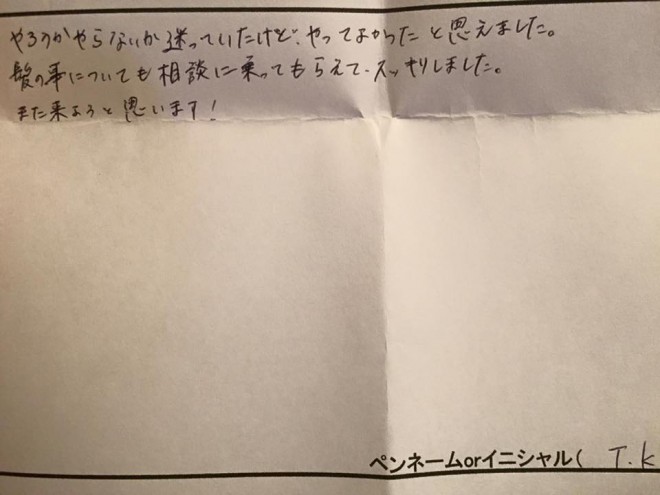 やるのかやらないか迷っていたけど、やってよかったと思えました。
髪の事についても相談に乗ってもらえて、スッキリしました。
また来ようと思います!
ペンネームorイニシャル( T.k